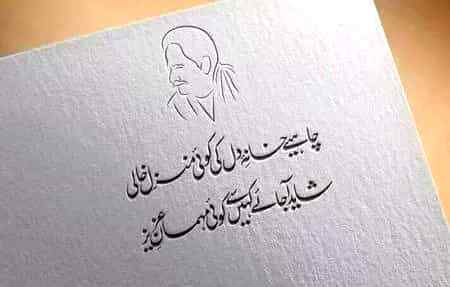 چاہیے خانۂ دل کی کوئی منزل خالی
شاید آجائے کہیں سے کوئی مہمانِ عزیز